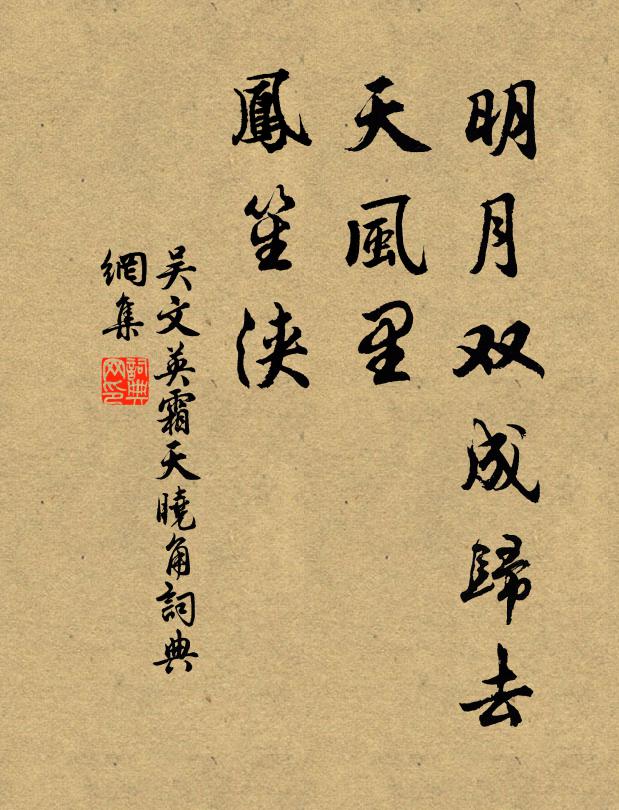 明月双成歸去
天風里
鳳笙浹
吴文英霜天曉角詞典
網集
詞典
网印